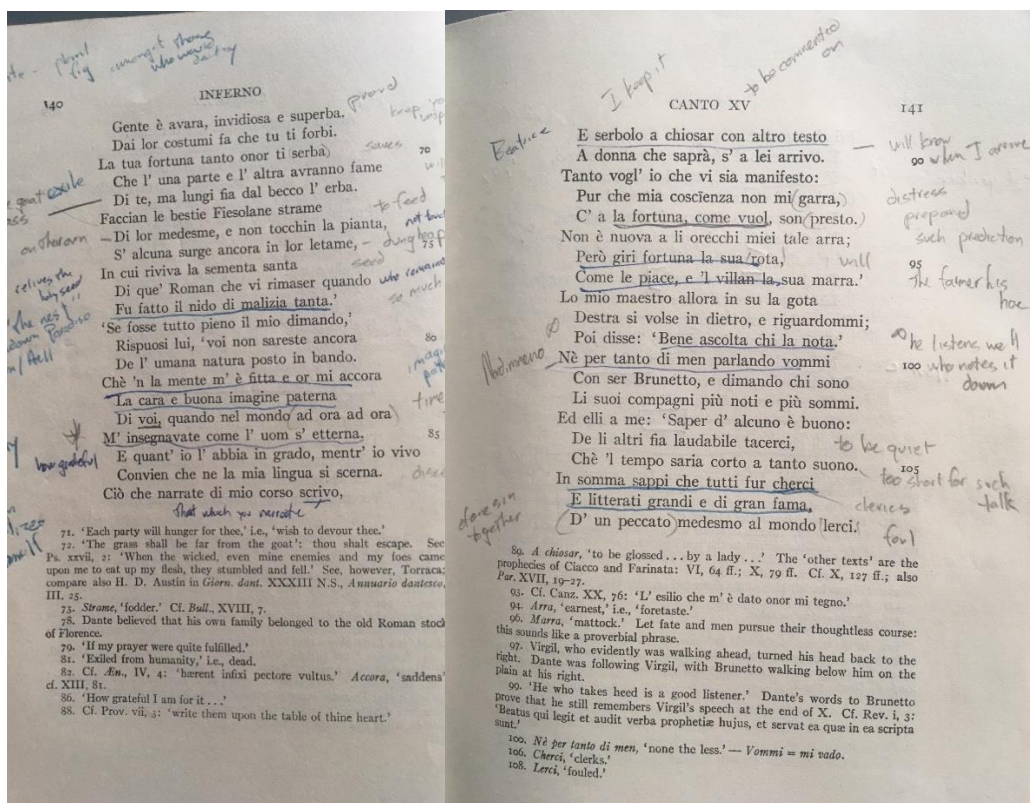 140
INFERNO
proud
Gente è avara, invidiosa e superba.
Dai lor costumi fa che tu ti forbi.
La tua fortuna tanto onor ti serba
saves
70
Che l' una parte e l' altra avranno fame
Di te, ma lungi fia dal becco l' erba.
Faccian le bestie Fiesolane strame
to feed
Di lor medesme, e non tocchin la pianta,
S' alcuna surge ancora in lor letame,
dung heap
75
In cui riviva la sementa santa
seed
Di que' Roman che vi rimaser quando
who remained
Fu fatto il nido di malizia tanta.'
so much
'Se fosse tutto pieno il mio dimando,'
Rispuosi lui, 'voi non sareste ancora
80
De l' umana natura posto in bando.
Chè 'n la mente m' è fitta e or mi accora
La cara e buona imagine paterna
Di voi, quando nel mondo ad ora ad ora
M' insegnavate come l' uom s' etterna.
85
how grateful
E quant' io l' abbia in grado, mentr' io vivo
Convien che ne la mia lingua si scerna.
Ciò che narrate di mio corso scrivo,
that which you narrate
71. 'Each party will hunger for thee,' i.e., 'wish to devour thee.'
72. 'The grass shall be far from the goat': thou shalt escape. See
Ps. xxvii, 2: 'When the wicked, even mine enemies and my foes came
upon me to eat up my flesh, they stumbled and fell.' See, however, Torraca;
compare also H. D. Austin in Giorn. dant. XXXIII N.S., Annuario dantesco,
III. 25.
73. Strame, 'fodder.' Cf. Bull., XVIII, 7.
78. Dante believed that his own family belonged to the old Roman stock
of Florence.
79. 'If my prayer were quite fulfilled.'
81. 'Exiled from humanity,' i.e., dead.
82. Cf. Æn., IV, 4: 'hærent infixi pectore vultus.' Accora, 'saddens'
cf. XIII, 81.
86. 'How grateful I am for it . . .'
88. Cf. Prov. vii, 3: 'write them upon the table of thine heart.'
I keep it
to be commented on
CANTO XV
141
Beatrice
E serbolo a chiosar con altro testo
A donna che saprà, s' a lei arrivo.
will know
90 when I arrive
Tanto vogl' io che vi sia manifesto:
Pur che mia coscïenza non mi garra,
distress
C' a la fortuna, come vuol, son presto.
prepared
Non è nuova a li orecchi miei tale arra;
such prediction
Però giri fortuna la sua rota,
will
95
Come le piace, e 'l villan la sua marra.'
The farmer his
hoe
Lo mio maestro allora in su la gota
Destra si volse in dietro, e riguardommi;
Poi disse: 'Bene ascolta chi la nota.'
he listens well
who notes it
down
Nè per tanto di men parlando vommi
100
Con ser Brunetto, e dimando chi sono
Li suoi compagni più noti e più sommi.
Ed elli a me: 'Saper d' alcuno è buono:
De li altri fia laudabile tacerci,
to be quiet
Chè 'l tempo saria corto a tanto suono.
105
too short for such
talk
In somma sappi che tutti fur cherci
clerics
E litterati grandi e di gran fama,
D' un peccato medesmo al mondo lerci.
foul
89. A chiosar, 'to be glossed . . . by a lady . . .' The 'other texts' are the
prophecies of Ciacco and Farinata: VI, 64 ff.; X, 79 ff. Cf. X, 127 ff.; also
Par. XVII, 19-27.
93. Cf. Canz. XX, 76: 'L' esilio che m' è dato onor mi tegno.'
94. Arra, 'earnest,' i.e., 'foretaste.'
96. Marra, 'mattock.' Let fate and men pursue their thoughtless course:
this sounds like a proverbial phrase.
97. Virgil, who evidently was walking ahead, turned his head back to the
right. Dante was following Virgil, with Brunetto walking below him on the
plain at his right.
99. 'He who takes heed is a good listener.' Dante's words to Brunetto
prove that he still remembers Virgil's speech at the end of X. Cf. Rev. i, 3:
'Beatus qui legit et audit verba prophetiæ hujus, et servat ea quæ in ea scripta
sunt.'
100. Nè per tanto di men, 'none the less.' — Vommi = mi vado.
106. Cherci, 'clerks.'
108. Lerci, 'fouled.'